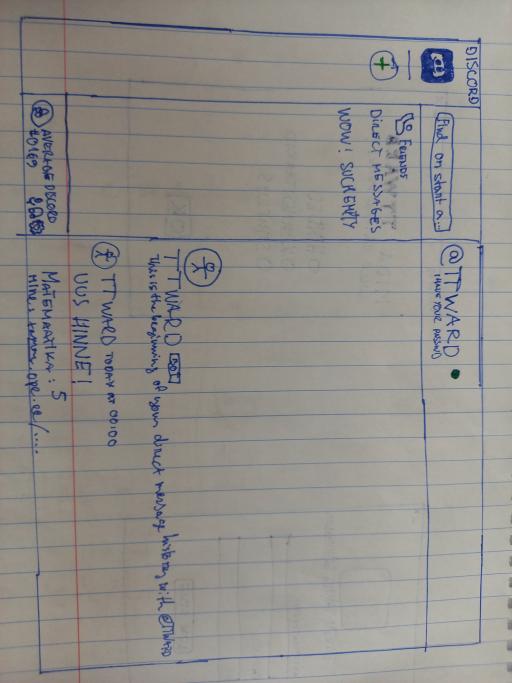 DISCORD
Find or start a...
FRIENDS
DIRECT MESSAGES
WOW! SUCH EMPTY
AVERAGE DISCORD
#0169
@TTWARD
I HAVE YOUR PASSWORD
TTWARD BOT
This is the beginning of your direct message history with @TTWARD
TTWARD TODAY AT 00:00
UUS HINNE!
MATEMAATIKA: 5